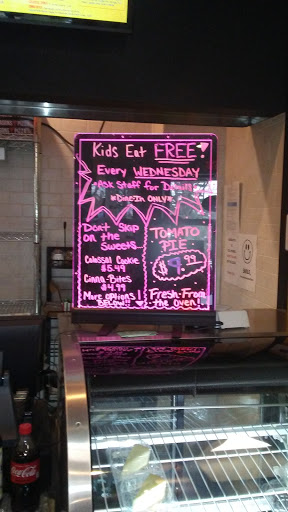 Kids Eat FREE!
Every WEDNESDAY
*Ask Staff for Details*
*Dine-In ONLY*
Don't Skip
on the
Sweets
Colossal Cookie
$5.49
Cinna-Bites
$4.99
More options
BELOW!!!
TOMATO
PIE
$9.99
Fresh-From
the Oven!
Coca-Cola